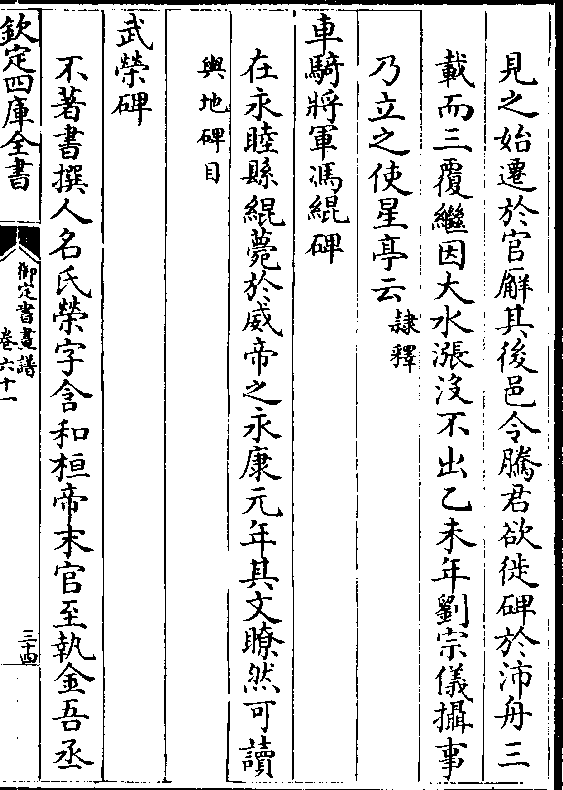 見之始遷於官廨其後邑令騰君欲徙碑於沛舟三
載而三覆繼因大水漲沒不出乙未年劉宗儀攝事
乃立之使星亭云隸釋
車騎將軍馮緄碑
在永睦縣緄薨於威帝之永康元年其文瞭然可讀
輿地碑目
武榮碑
不著書撰人名氏榮字含和桓帝末官至執金吾丞
欽定四庫全書
御定書畫譜
卷六十一
三十四